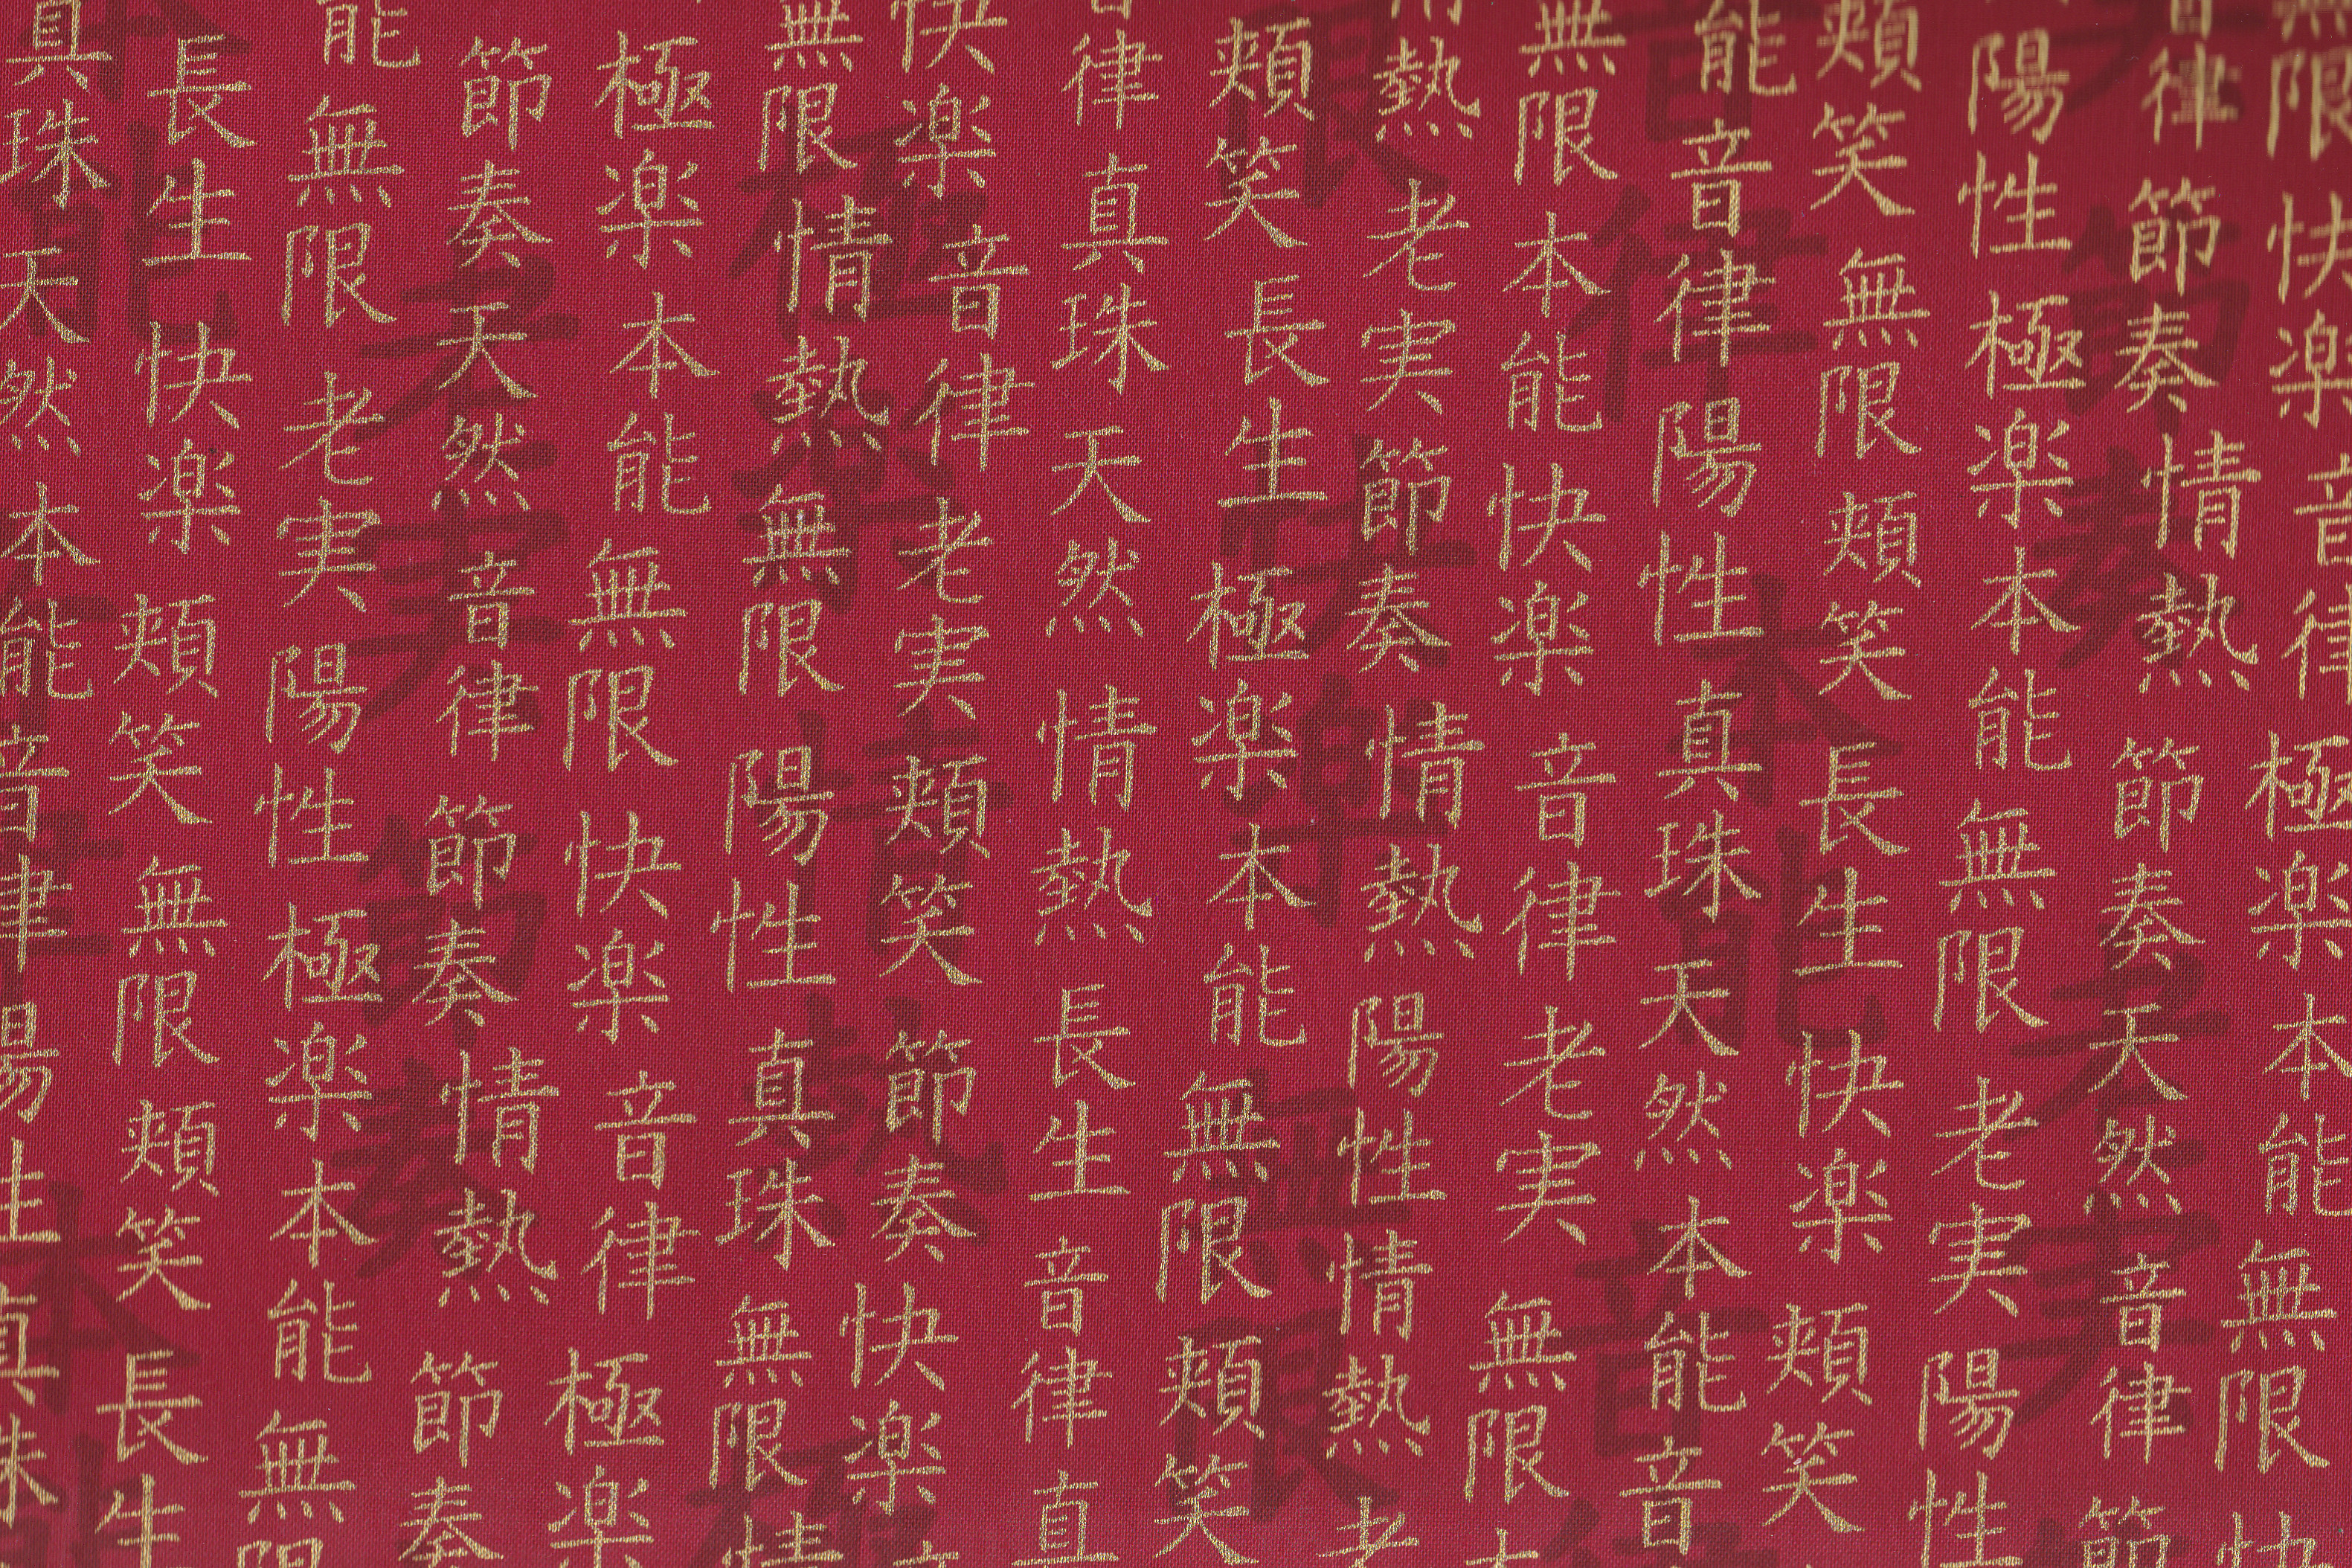 無限快楽音律極楽本能無限快
音律節奏情熱節奏天然音律節
陽性極楽本能無限老実陽性
頬笑無限頬笑長生快楽頬笑
能音律陽性真珠天然本能音
無限本能快楽音律老実無限
情熱老実節奏情熱陽性情熱老
頬笑長生極楽本能無限頬笑
音律真珠天然情熱長生音律真
快楽音律老実頬笑節奏快楽
無限情熱無限陽性真珠無限情
極楽本能無限快楽音律極楽
節奏天然音律節奏情熱節奏
能無限老実陽性極楽本能無限
長生快楽頬笑無限頬笑長生
真珠天然本能音律陽性真珠